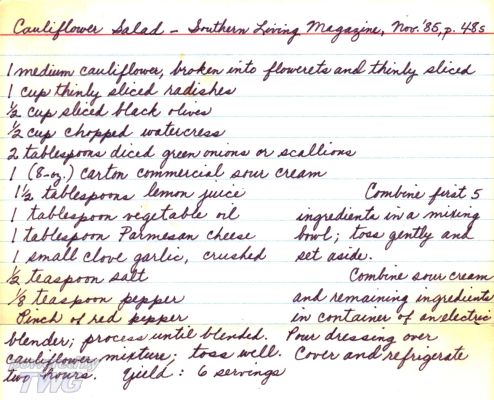 Cauliflower Salad – Southern Living Magazine, Nov. '85, p. 48s
1 medium cauliflower, broken into flowerets and thinly sliced
1 cup thinly sliced radishes
½ cup sliced black olives
½ cup chopped watercress
2 tablespoons diced green onions or scallions
1 (8-oz.) carton commercial sour cream
1½ tablespoons lemon juice
1 tablespoon vegetable oil
1 tablespoon Parmesan cheese
1 small clove garlic, crushed
½ teaspoon salt
⅛ teaspoon pepper
Pinch of red pepper
Combine first 5
ingredients in a mixing
bowl; toss gently and
set aside.
Combine sour cream
and remaining ingredients
in container of an electric
blender; process until blended. Pour dressing over
cauliflower mixture; toss well. Cover and refrigerate
two hours. Yield: 6 servings
TWG